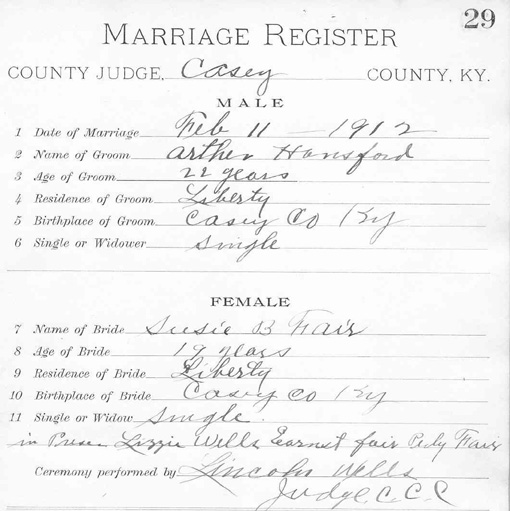 29
MARRIAGE REGISTER
COUNTY JUDGE, Casey COUNTY, KY.
MALE
1 Date of Marriage Feb 11 - 1912
2 Name of Groom Arther Hansford
3 Age of Groom 22 years
4 Residence of Groom Liberty
5 Birthplace of Groom Casey Co Ky
6 Single or Widower single
FEMALE
7 Name of Bride Susie B Fair
8 Age of Bride 19 years
9 Residence of Bride Liberty
10 Birthplace of Bride Casey Co Ky
11 Single or Widow single.
in Lizzie Wells Earnst fair Fair
Ceremony performed by Lincoln Wells
Judge C. C. C